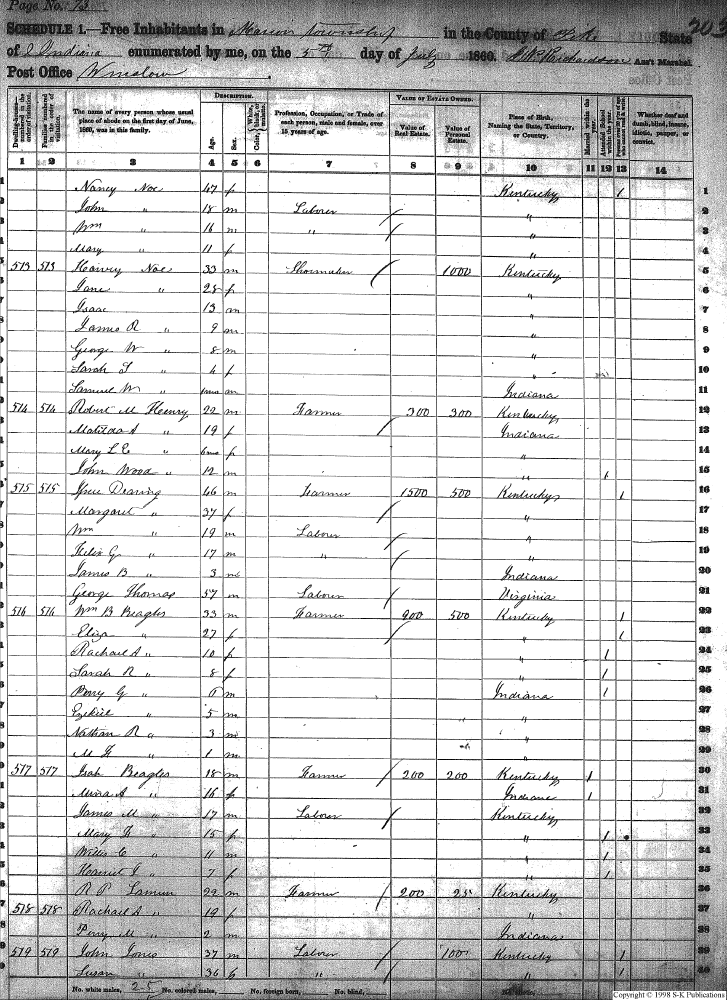 Page No. 73
SCHEDULE 1.—Free Inhabitants in Marion Township in the County of Pike State 203
of Indiana enumerated by me, on the 5th day of July 1860. Richardson Ass't Marshal.
Post Office Winslow
Dwelling-houses—numbered in the order of visitation.
Families numbered in the order of visitation.
The name of every person whose usual place of abode on the first day of June, 1860, was in this family.
DESCRIPTION.
Age.
Sex.
Profession, Occupation, or Trade of each person, male and female, over 15 years of age.
VALUE OF ESTATE OWNED.
Value of Real Estate.
Value of Personal Estate.
Place of Birth, Naming the State, Territory, or Country.
Married within the year.
Whether deaf and dumb, blind, insane, idiotic, pauper, or convict.
1 2 3 4 5 6 7 8 9 10 11 12 13 14
1 Nancy Noe 47 f Kentucky / 1
John " 18 m Laborer " 2
Wm " 16 m " " 3
Mary " 11 f " 4
513 513 Harvey Noe 33 m Shoemaker 1000 Kentucky 5
Jane " 28 f " 6
Isaac 13 m " 7
James R " 9 m " 8
George W " 8 m " 9
Sarah J " 4 f " 10
Samuel M " m Indiana 11
514 514 Robert M Henry 22 m Farmer 300 300 Kentucky 12
Matilda A " 19 f Indiana 13
Mary L E " 6mo f " 14
John Wood " 12 m " 1 15
515 515 Dearing 46 m Farmer 1500 500 Kentucky 1 16
Margaret " 37 f " 17
Wm " 19 m Laborer " 18
Felix G " 17 m " " 19
James B " 3 m Indiana 20
George Thomas 57 m Laborer Virginia 21
516 516 Wm B Beagles 33 m Farmer 900 500 Kentucky 1 22
Eliza " 27 f " 1 23
Rachael A " 10 f " 1 24
Sarah R " 8 f " 1 25
Perry G " m Indiana 1 26
Ezekiel " 5 m " 27
Nathan R " 3 m " 28
M F " 1 m " 29
517 517 Beagles 18 m Farmer 200 200 Kentucky 1 30
A " 16 f Indiana 1 31
James M " 17 m Laborer Kentucky 32
Mary " 15 f " 1 33
Willis C " 11 m " 1 34
Harriet J " 7 f " 1 35
R P Lamun 22 m Farmer 200 25 Kentucky 36
518 518 Rachael A " 19 f " 37
Perry M " 2 m Indiana 38
519 519 John Jones 37 m Laborer 100 Kentucky 1 39
Susan " 36 f " " 1 40
No. white males, 25 No. colored males, No. foreign born, No. blind,
Copyright © 1998 S-K Publications